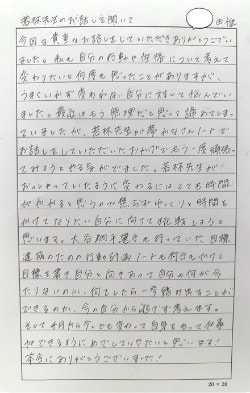 若林先生のお話しを聞いて
内怪
今回は貴重なお話しをしていただきありがとうござい
ました。私も自分の行動や性格について考えて
変わりたいと何度も思ったことがありますが、
うまくいかず変われない自分にずっと悩んでい
ました。最近はもう無理だと思って諦めてしまっ
ていましたが、若林先生が夢かなさんノートで
お話しをしていただいたおかげでもう一度頑張っ
てみようとやる気がでました。若林先生が
おっしゃっていたように変わるにはとても時間が
かかると思うので焦らずゆっくりと時間を
かけてなりたい自分に向けて挑戦しようと
思います。大谷翔平選手も行っていた目標
達成のための行動計画ノートも何台もかけて
目標を書き自分と向きあって自分の何が今
たりないのかい何をしたら一番結果が出ることが
できるのか、今の自分から逃げず考えます。
そして4月から少しでも変わって自身をもって仕事
ができるようにめざしていきたいと思います!
本当にありがとうございました!
20×20